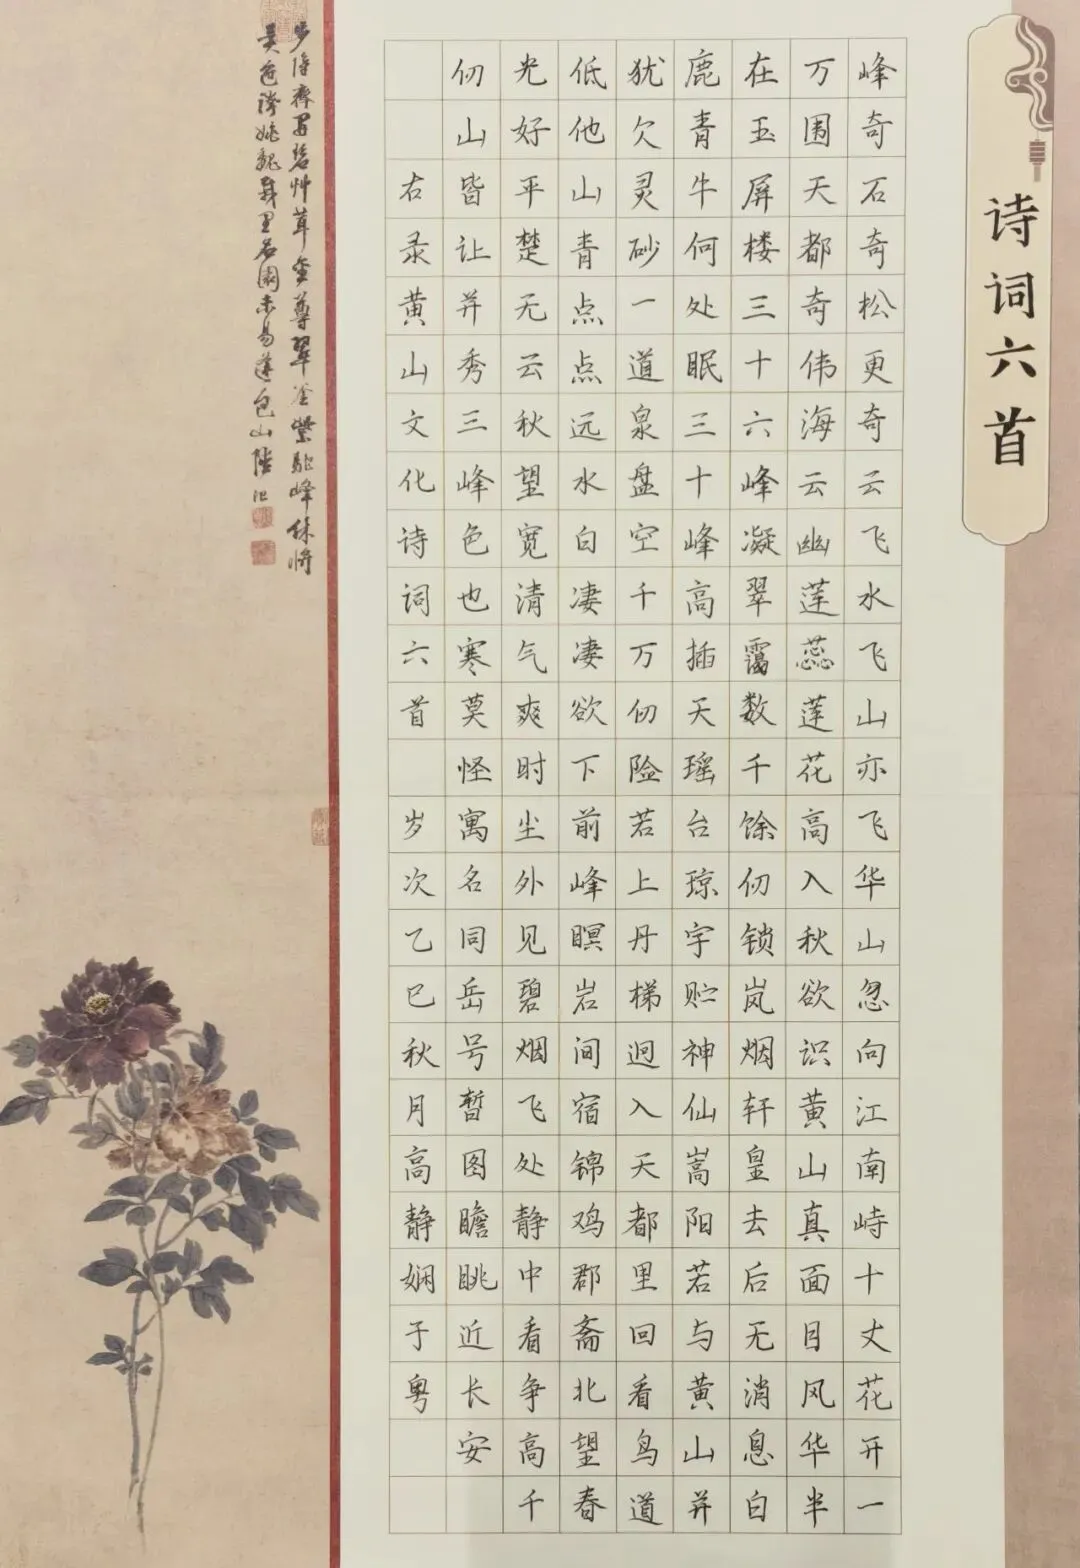 诗词六首
峰奇石奇松更奇云飞水飞山亦飞华山忽向江南峙十丈花开一
万围天都奇伟海云幽莲蕊莲花高入秋欲识黄山真面目风华半
在玉屏楼三十六峰凝翠霭数千馀仞锁岚烟轩皇去后无消息白
鹿青牛何处眠三十峰高插天瑶台琼宇贮神仙嵩阳若与黄山并
犹欠灵砂一道泉盘空千万仞险若上丹梯迥入天都里回看鸟道
低他山青点点远水白凄凄欲下前峰瞑岩间宿锦鸡郡斋北望春
光好平楚无云秋望宽清气爽时尘外见碧烟飞处静中看争高千
仞山皆让并秀三峰色也寒莫怪寓名同岳号暂图瞻眺近长安
右录黄山文化诗词六首 岁次乙巳秋月高静娴于粤
艸茸金尊翠釜紫驼峰休将
姚魏 里名園未易逢包山陸治